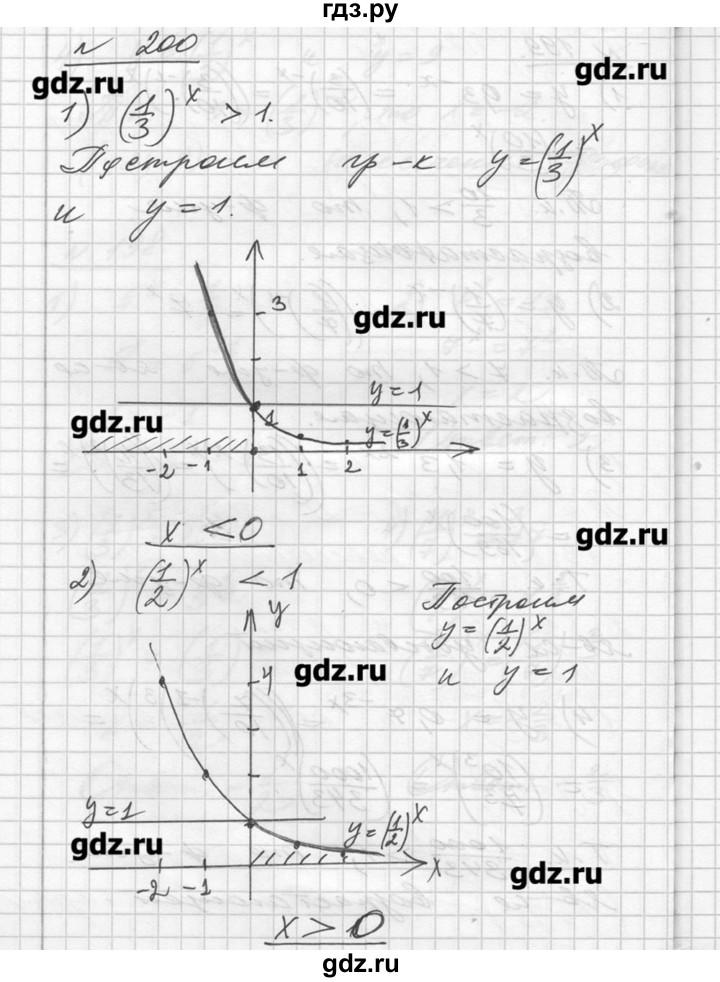 гдз.ру
№ 200
gdz.ru
gdz.ru
1) (1/3)^x > 1.
Построим гр-к y = (1/3)^x
и y = 1.
3
gdz.ru
y = 1
gdz.ru
1
y = (1/3)^x
-2 -1 1 2
x < 0
gdz.ru
2) (1/2)^x < 1
Построим
y
y = (1/2)^x
4
gdz.ru
и y = 1
y = 1
y = (1/2)^x
gdz.ru
x
gdz.ru
-2 -1
x > 0
gdz.ru